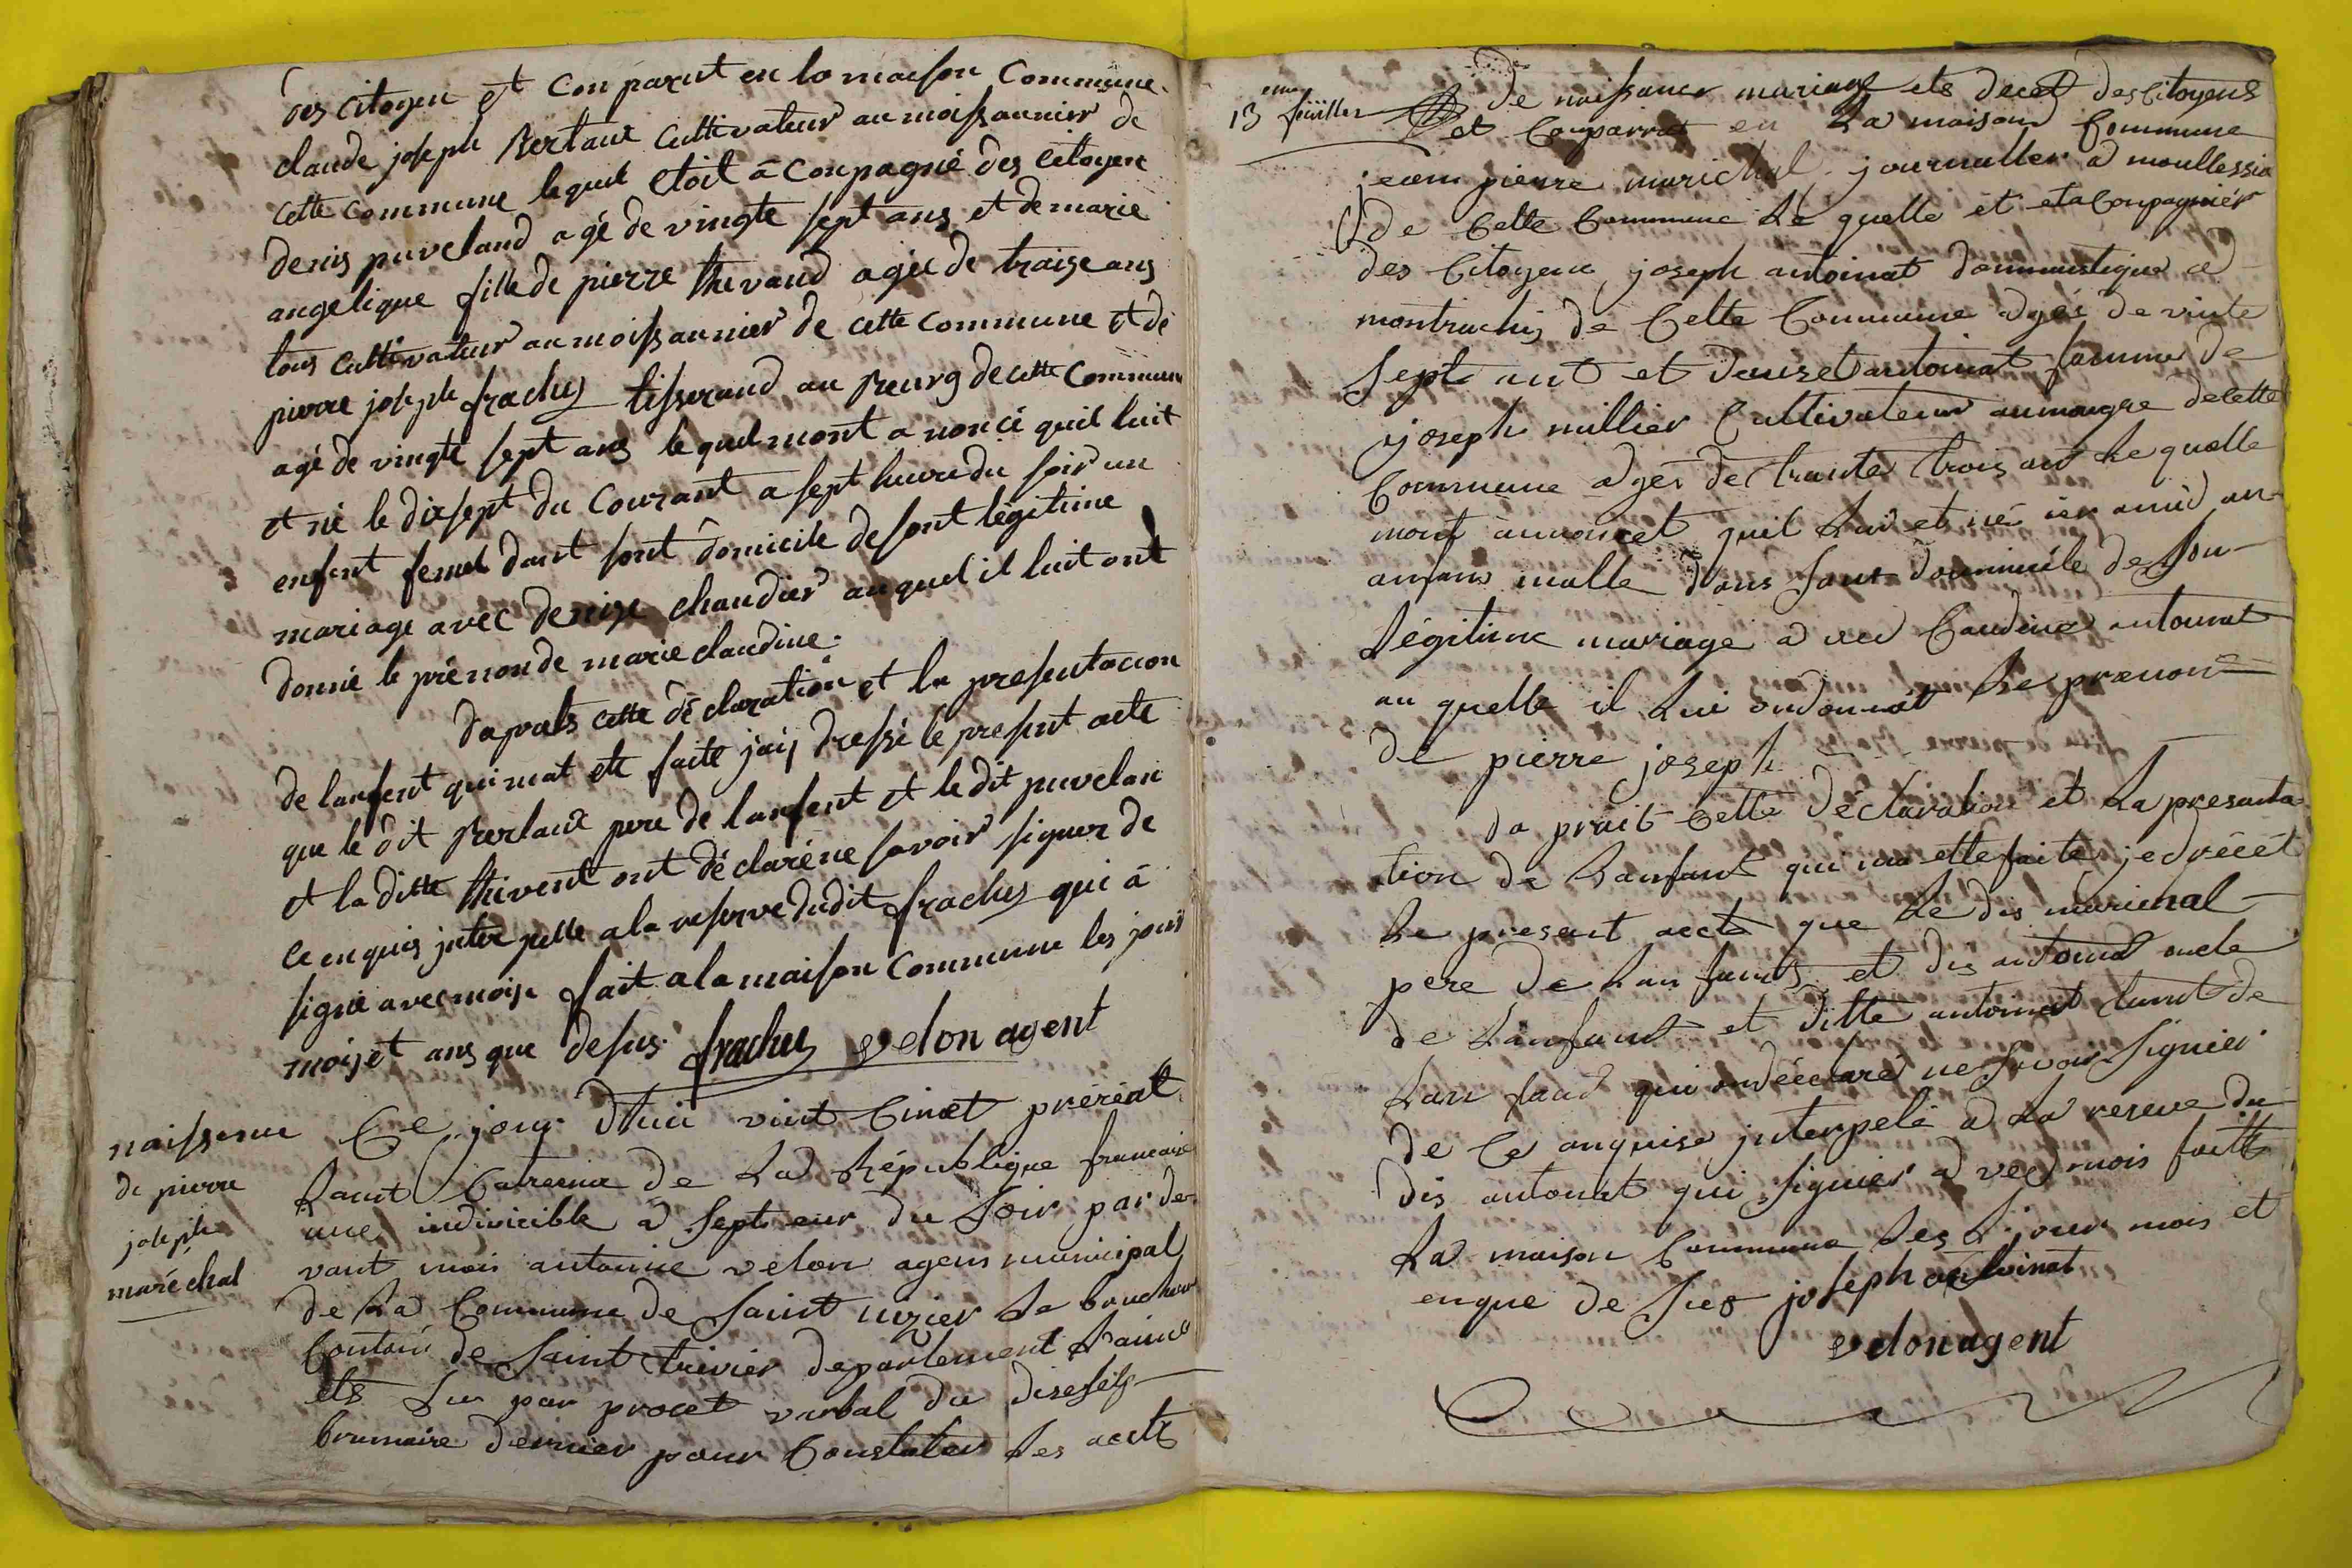 des citoyen et conparut en la maison Commune.
claude joseph Bertaux Cultivateur au moissonnier de
cette commune lequel etoit a conpagnié des citoyen
denis puveland agé de vingte sept ans et de marie
angelique fille de pierre thevand agée de traise ans
tous cultivateur au moissonnier de cette commune et de
pierre joseph frachey tisserand au Bourg de cette Commune
agé de vingte sept ans le quel mont a noncé quil luit
et né le disept du Courant a sept heure du soir un
enfent femel dant sont domicile de sont légitime
mariage avec denise chaudier au quel il luit ont
donné le prénon de marie claudine.
daprals cette déclaration et la presentacion
de lanfent qui mat ete faite jaiy dressé le present acte
que le dit Bertaux pere de lanfent et le dit puvelan
et la ditte thivent ont déclaré ne savoir signer de
ce enquis jnter pelle a la reserve dudit frachey qui à
signé avec moiy fait a la maison Commune les jour
moiset ans que desus. frachey velon agent
naissence
de pierre
joseph
maréchal
Ce jour dhui vint Cinct préréat
Lant Catreime de La République francaise
une indivicible a Sept eur du Soir par de
vant mois antonie velon agens municipal
de La Commune de Saint nizier Le bouchou
Contain de Saint trivier departement Lainne
ets Lu par procet virbal du diseseiz
brumaire dernier pour Constater Les actte
13 eme feüiller
de naissance mariage ets decet des Citoyens
et Comparrut en La maison Commune
jean pierre marichal journallier a moullessia
de Cette Commune Le quelle et eta Conpagnier
des Citoyens joseph antoinat dommestique a
montrachy de Cette Commune agés de vinte
Sept ant et denise antoinat famme de
joseph millier Cultivateur aumaugre de cette
Commune agés de trante trois an Le quelle
mont annoncet quil Lui et né ier a miid an
anfans malle dans Sont dommicile de Son
Légitime mariage a vec Caudine antoinat
au quelle il Lui ondonnét Le prenon
de pierre joseph
da prait Cette déclaration et La presanta
tion de Lanfant qui ma ette faite je drécét
Le present actt que Le dis marichal
pere de Lan fants et dis antoinat oncle
de Lanfant et ditte antoinat tant de
Lan fant qui ondéclaré ne Savoir Signier
de Ce anquise jnterpelé a La reseve du
dis antonat qui Signier a vec mois faitt
La maison Commune Les jour mois et
enque de Sus joseph antoinat
velon agent